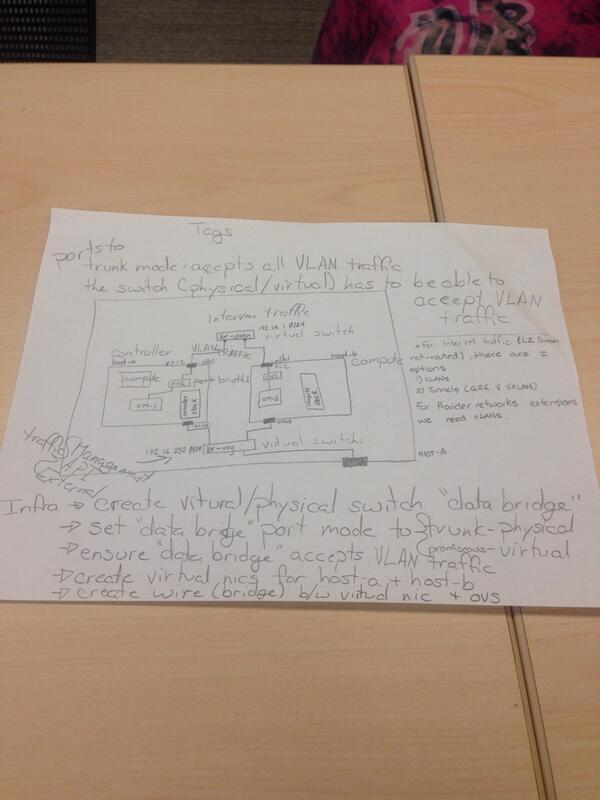 Tags
ports to
trunk mode - accepts all VLAN traffic
the switch (physical/virtual) has to be able to
accept VLAN
traffic
Intervm traffic
172.16.1.0/24
br-data virtual switch
VLAN TRAFFIC
controller
host-a
vnic eth1
eth1
nic
host-b
compute
compute
port
VM-1
VM-2
eth0
eth0
172.16.232.0/24
br-mg virtual switch
HOST-A
* For Intervm traffic (L2 Domain
not-routed), there are 2
options
1) VLANs
2) Tunnels (GRE & VXLAN)
For Provider networks extensions
we need VLANs.
traffic
Management
API
External
Infra → create vitural/physical switch "data bridge"
→ set "data bridge" port mode to trunk-physical
promiscous-virtual
→ ensure "data bridge" accepts VLAN traffic
→ create virtual nics for host-a + host-b
→ create wire (bridge) b/w virtual nic + ovs